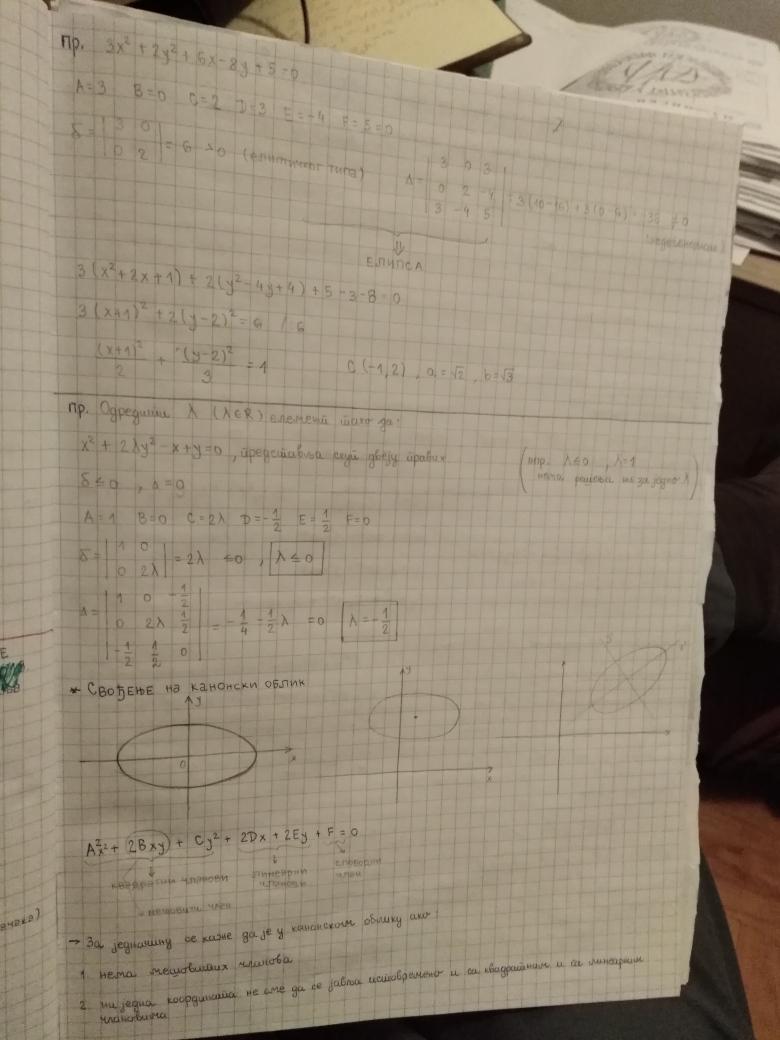 Пр. 3x² + 2y² + 6x - 8y + 5 = 0
A=3 B=0 C=2 D=3 E=-4 F=5=0
δ = |3 0; 0 2| = 6 >0 (елиптичног типа)
Δ = |3 0 3; 0 2 -4; 3 -4 5| = 3(10-16) + 3(0-6) = -36 ≠0
⇓
ЕЛИПСА
3(x²+2x+1) + 2(y²-4y+4) + 5-3-8=0
3(x+1)² + 2(y-2)² = 6 / 6
(x+1)²/2 + (y-2)²/3 = 1 C(-1,2), a=√2, b=√3
Пр. Одредити λ (λ∈R) елемент тако да:
x² + 2λy² - x + y = 0, представља скуп двеју правих
(нпр. λ≤0, λ=1
нема решења ни за једно λ)
δ ≤ 0, Δ = 0
A=1 B=0 C=2λ D=-1/2 E=1/2 F=0
δ = |1 0; 0 2λ| = 2λ ≤0, λ ≤ 0
Δ = |1 0 -1/2; 0 2λ 1/2; -1/2 1/2 0| = -1/4 = 1/2 λ =0 λ = -1/2
* СВОЂЕЊЕ НА КАНОНСКИ ОБЛИК
y
0 x
y
x
Ax² + 2Bxy + Cy² + 2Dx + 2Ey + F = 0
квадратни чланови линеарни чланови слободни члан
мешовити члан
→ За једначину се каже да је у канонском облику ако:
1. нема мешовитих чланова
2. ни једна координата не сме да се јавља истовремено и са квадратним и са линеарним
члановима